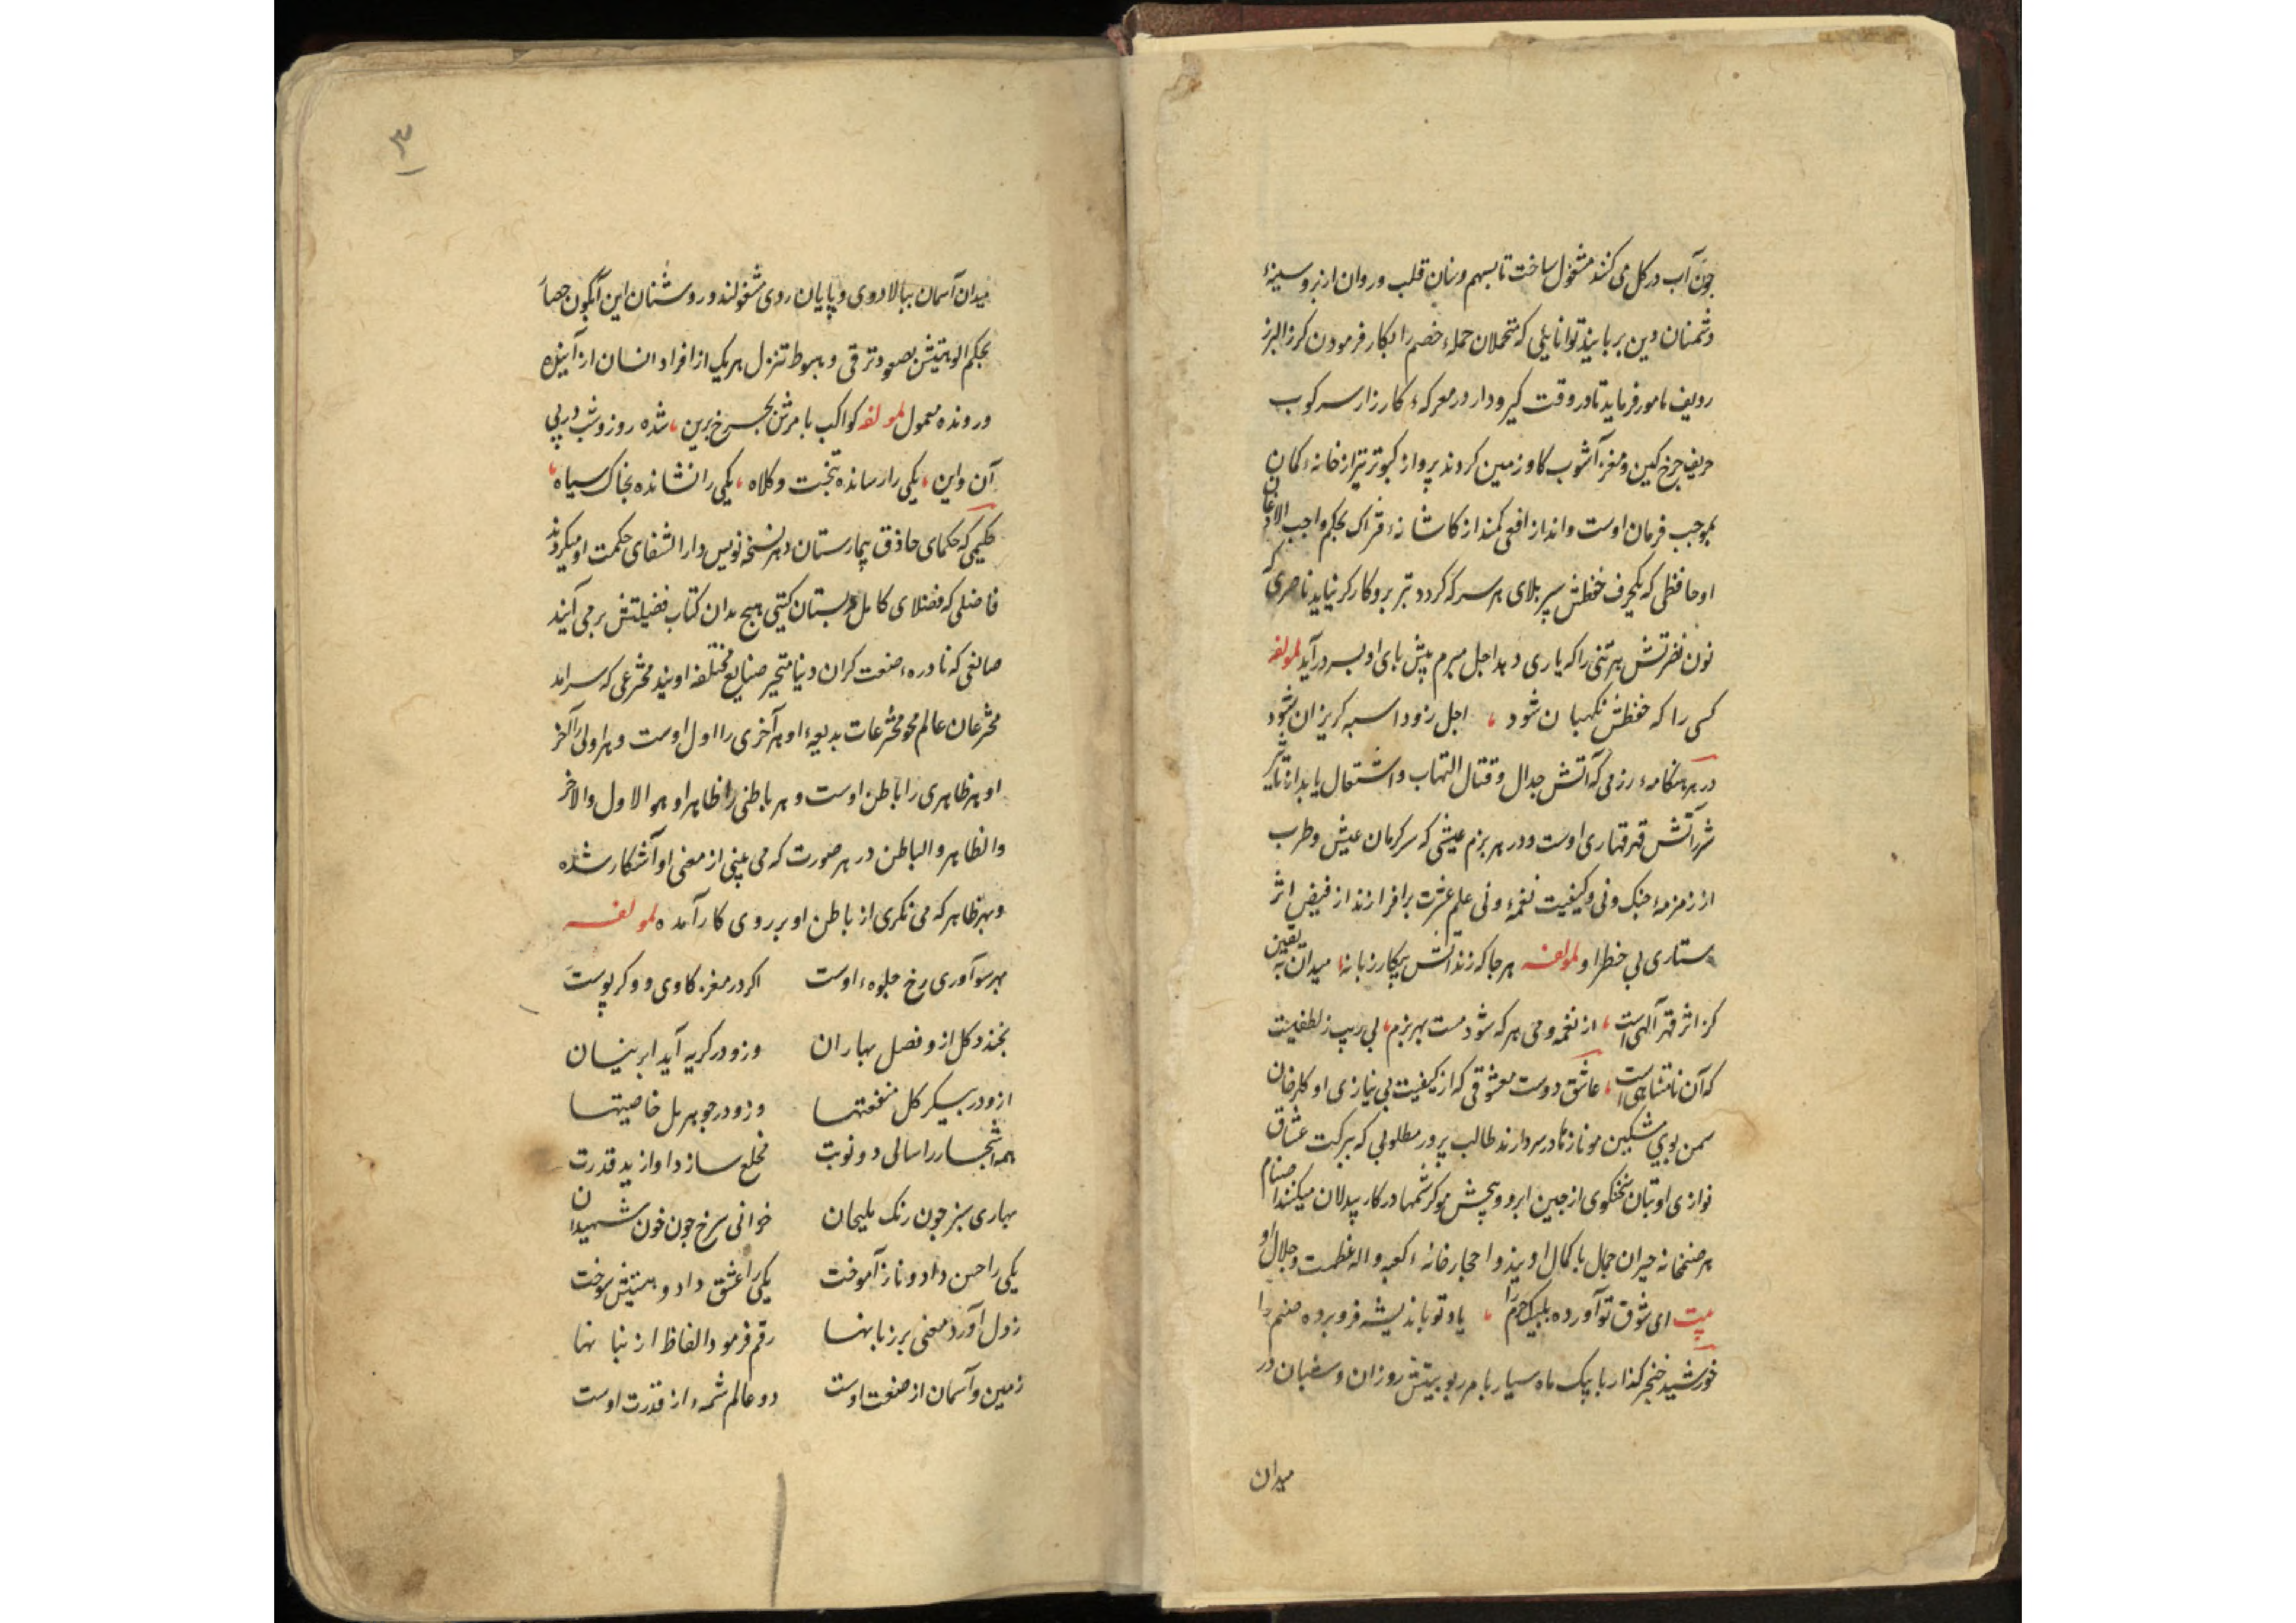 چون آب در کل می کنند مشغول ساخت تا بسهم و سنان قلب و روان از بر و سینهٔ
دشمنان دین بربایند توانایئی که متحملان حملهء خصم را بکار فرمودن کرز البرز
ردیف نامور فرماید تا در وقت کیر و دار در معرکهء کارزار سرکوب
حریف چرخ کین و مغز آشوب کاو زمین کردند پرواز کبوتر تیر از خانهء کمان
بموجب فرمان اوست و انداز افعی کمند از کاشانهء فتراک بحکم واجب الاذعان
او حافظی که بکحرف حفظش سپر بلای هر سر که کردد تیر برو کارکر نیاید ناصری که
نون نصرتش هر تنی را که یاری دهد اجل مبرم پیش پای او بسر در آید لمولفه
کسی را که حفظش نکهبان شود ، اجل زود اسبه کریزان شود
در هر هنکامهء رزمی که آتش جدال و قتال التهاب و اشتعال یابد از تأثیر
شرر آتش قهر قهاری اوست و در هر بزم عیشی که سرکرمان عیش و طرب
از زمزمهٔ چنک و نی و کیفیت نغمهٔ و نی علم عشرت برافرازند از فیض اثر
ستاری بی خطر او لمولفه هر جا که زند آتش پیکار زبانه ، میدان به یقین
کز اثر قهر آلهی است ، از نغمه و می هر که شود مست بهر بزم ، بی ریب ز لطفیست
که آن نامتناهی است ، عاشق دوست معشوقی که از کیفیت بی نیازی او کلرخان
سمن بوی مشکین مو نازها در سر دارند طالب پرور مطلوبی که ببرکت عشاق
نوازی او بتان سخنکوی از چین ابرو و چشم مو کرشمها در کار بیدلان میکنند اصنام
هر صنمخانه حیران جمال با کمال اویند و احجار خانهٔ کعبه واله عظمت و جلال او
بیت ای شوق تو آورده بلبیک حرم را ، یاد تو باندیشه فرو برده صنم را
خورشید خنجر کذار با پیک ماه سیار بامر ربوبیتش روزان و شبان در
میدان
۳
میدان آسمان ببالا دوی و پایان روی مشغولند و روشنان این آبکون حصار
بحکم الوهیتش بصعود ترقی و هبوط تنزل هر یک از افراد انسان از آینده
و رونده معمول لمولفه کواکب بامرش بچرخ برین ، شده روز و شب در پی
آن و این ، یکی را رسانده بتخت و کلاه ، یکی را نشانده بخاک سیاه ،
حکیمی که حکمای حاذق بیمارستان دهر نسخه نویس دار الشفای حکمت او میکردند
فاضلی که فضلای کامل دبستان کیتی هیج مدان کتاب فضیلتش بر می آیند
صانعی که نادرهء صنعت کران دنیا متحیر صنایع مختلفه اویند مخترعی که سرامد
مخترعان عالم محو مخترعات بدیعهء او هر آخری را اول اوست و هر اولی را آخر
او هر ظاهری را باطن اوست و هر باطنی را ظاهر او هو الاول والاخر
والظاهر والباطن در هر صورت که می بینی از معنی او آشکار شده
و بهر ظاهر که می نکری از باطن او بر روی کار آمده لمولفه
بهر سو آوری رخ جلوهء اوست اکر در مغز کاوی و و کر پوست
بخندد کل ازو فصل بهاران وزو در کریه آید ابر نیسان
ازو در پیکر کل منفعتها وزو در جوهر مل خاصیتها
همه اشجار را سالی دو نوبت مخلع سازد او از ید قدرت
بهاری سبز چون رنک ملیحان خزانی سرخ چون خون شهیدان
یکی را حسن داد و ناز آموخت یکی را عشق داد و هستیش سوخت
ز دل آورد معنی بر زبانها رقم فرمود الفاظ از بنانها
زمین و آسمان از صنعت اوست دو عالم شمهء از قدرت اوست